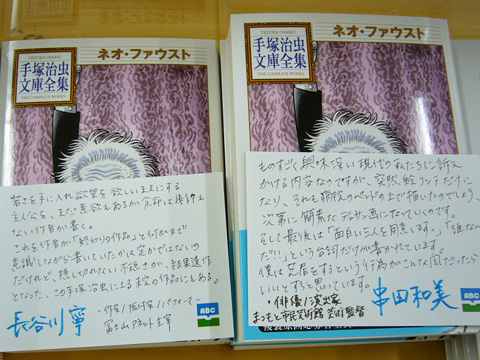 TEZUKA OSAMU
手塚治虫
文庫全集
THE COMPLETE WORKS
ネオ・ファウスト
若さを手に入れ欲望を欲しいままにする
主人公を、まだ意欲もあるが余命は
ない作者が書く。
これを作者が「終わりの作品」と
意識しながら書いていたかは定かではないの
だけれど、隠しきれない不穏さが、結果遺作
となった、この手塚治虫による未完の作品にもある。
長谷川寧
・作家/振付家/パフォーマー
冨士山アネット主宰
ABC
TEZUKA OSAMU
手塚治虫
文庫全集
THE COMPLETE WORKS
ネオ・ファウスト
ものすごく興味深い現代の私たちに訴え
かける内容なのですが、突然、絵コンテだけに
なり、それも病院のベッドの上で描いたのでしょう、
次第に簡素なデッサン画になっていくのです。
そして最後は「面白い人を用意します。」「誰なん
だ!!」という台詞だけが書かれています。
僕は芝居をするという行為がこんな風だったら
いいとずっと思っています。
・俳優/演出家
まつもと市民芸術館 芸術監督
串田和美
ABC